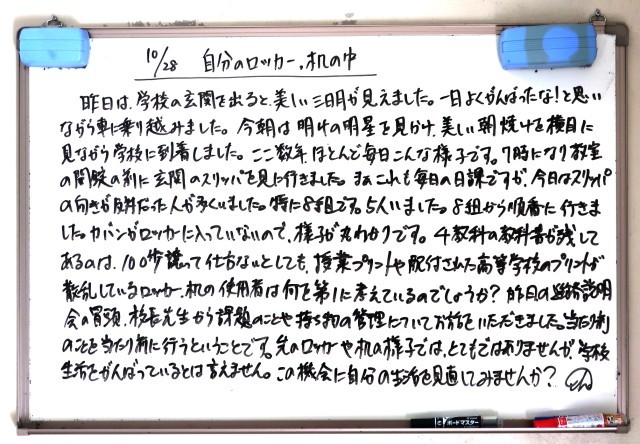 10/28 自分のロッカー、机の中
昨日は、学校の玄関を出ると、美しい三日月が見えました。一日よくがんばったな!と思い
ながら車に乗り込みました。今朝は明けの明星を見かけ、美しい朝焼けを横目に
見ながら学校に到着しました。ここ数年ほとんど毎日こんな様子です。7時になり教室
の開錠の前に玄関のスリッパを見に行きました。まぁこれも毎日の日課ですが、今日はスリッパ
の向きが反対だった人が多くいました。特に8組です。5人いました。8組から順番に行きま
した。カバンがロッカーに入っていないので、様子が丸わかりです。4教科の教科書が残して
あるのは、100歩譲って仕方ないとしても、授業プリントや配付された高等学校のプリントが
散乱しているロッカー、机の使用者は何を第1に考えているのでしょうか?昨日の進路説明
会の冒頭、校長先生から課題のことや持ち物の管理についてお話をいただきました。当たり前
のことを当たり前に行うということです。先のロッカーや机の様子では、とてもではありませんが、学校
生活をがんばっているとは言えません。この機会に自分の生活を見直してみませんか?
ボードマスター